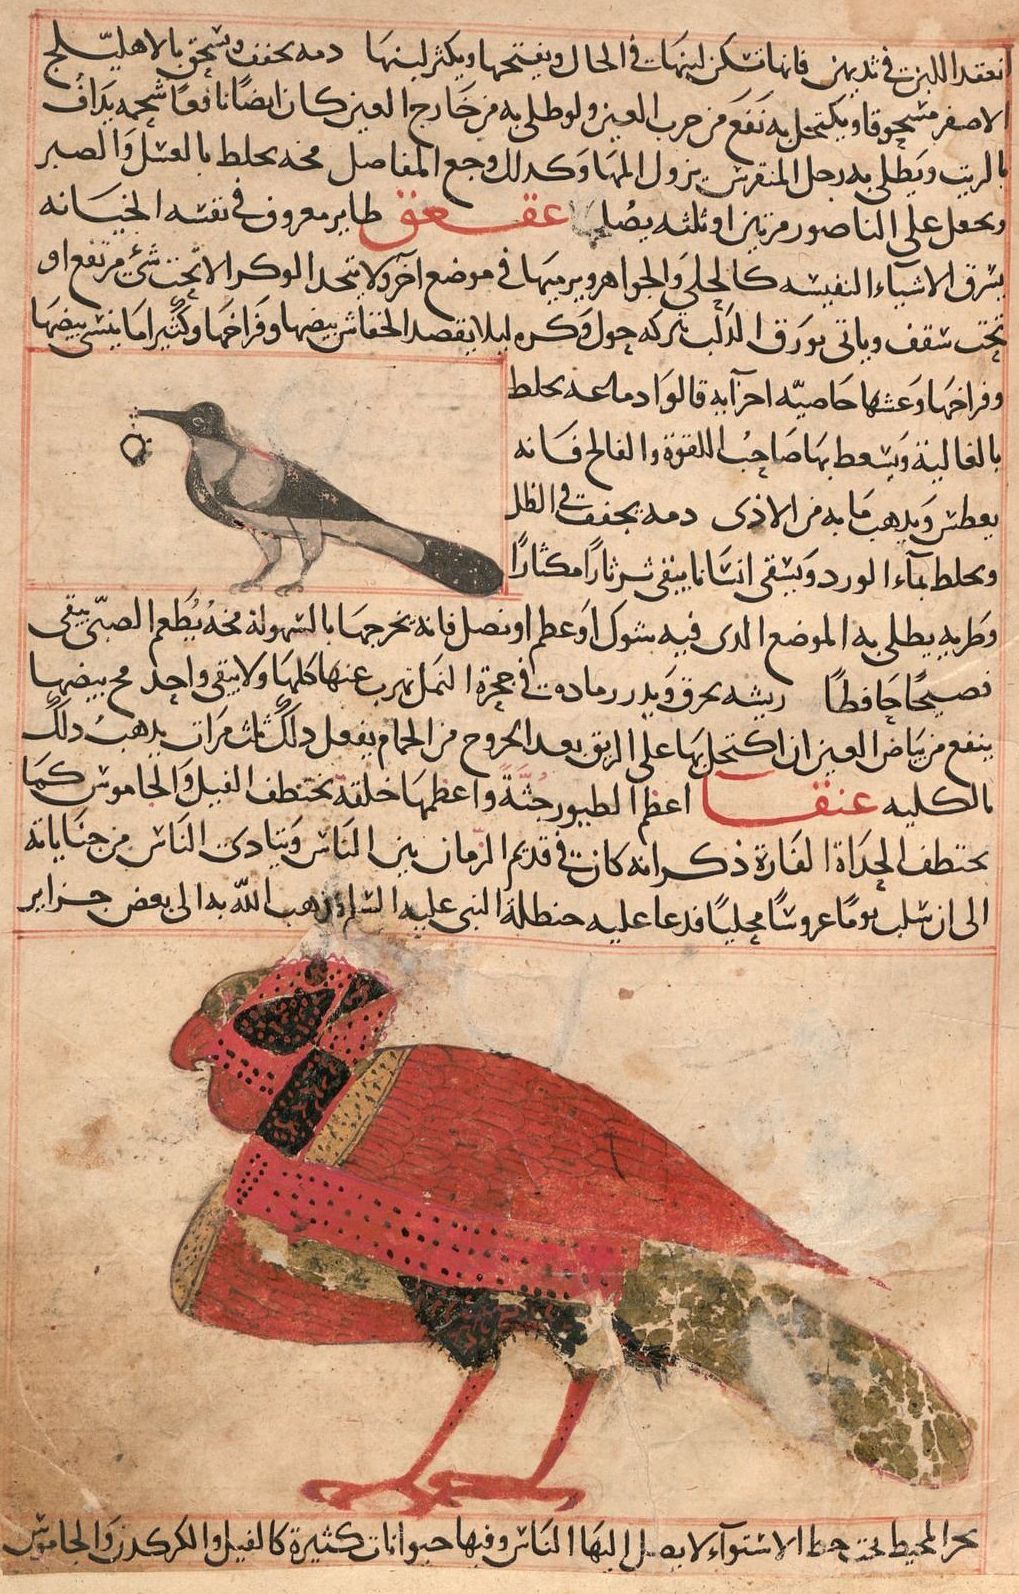 انعقد اللبن في ثديهن فانها تسكن لبنها في الحال ويفتحها ويكثر لبنها دمه يجفف ويسحق بالاهليلج
الاصفر مسحوقا ويكتحل به نفع من جرب العين ولو طلي به من خارج العين كان ايضًا نافعًا شحمه يداف
بالزيت ويطلى به رجل المنقرس يزول المها وكذلك وجع المفاصل مخه يخلط بالعسل والصبر
ويجعل على الناصور مرتين او ثلثه يصلح عقعق طاير معروف في نفسه الخيانه
يسرق الاشياء النفيسه كالحلي والجواهر ويرميها في موضع آخر ولا يتخذ الوكر الا تحت شئ مرتفع او
تحت سقف وياتي بورق الدلب يتركه حول وكره ليلا يقصد الخفاش بيضها وفراخها وكثيرا ما ينسى بيضها
وفراخها وعشها خاصيّه اجزآيه قالوا دماغه يخلط
بالغالية ويسعط بها صاحبُ اللقوة والفالج فانه
يعطس ويذهب ما به من الاذى دمه يجفف في الظل
ويخلط بمآء الورد ويسقى انسانا يبقى ثرثارًا مكثارًا
وطريه يطلى به الموضع الذى فيه شوك او عظم او نصل فانه يخرجها بالسهولة مخهُ يُطعم الصبّى يبقى
فصيحًا حافظًا ريشه يحرق ويذر رماده في حجرة النمل تهرب عنها كلها ولا يبقى واحد مح بيضها
ينفع من بياض العين ان اكتحل بها على الريق بعد الخروج من الحمام يفعل ذلك ثلث مرات يذهبُ ذلك
بالكليه عنقا اعظم الطيور جثّةً واعظمها خلقة يختطف الفيل والجاموس كما
يختطف الحداة الفارة ذكر انه كان في قديم الزمان بين الناس ويتاذى الناس من جناياته
الى ان سلب يومًا عروسًا مجليًا فدعا عليه حنظلة النبي عليه السلم فذهب اللّه به الى بعض جزاير
بحر المحيط تحت خط الاستوآء لا يصل اليها الناس وفيها حيوانات كثيرة كالفيل والكركدن والجاموس